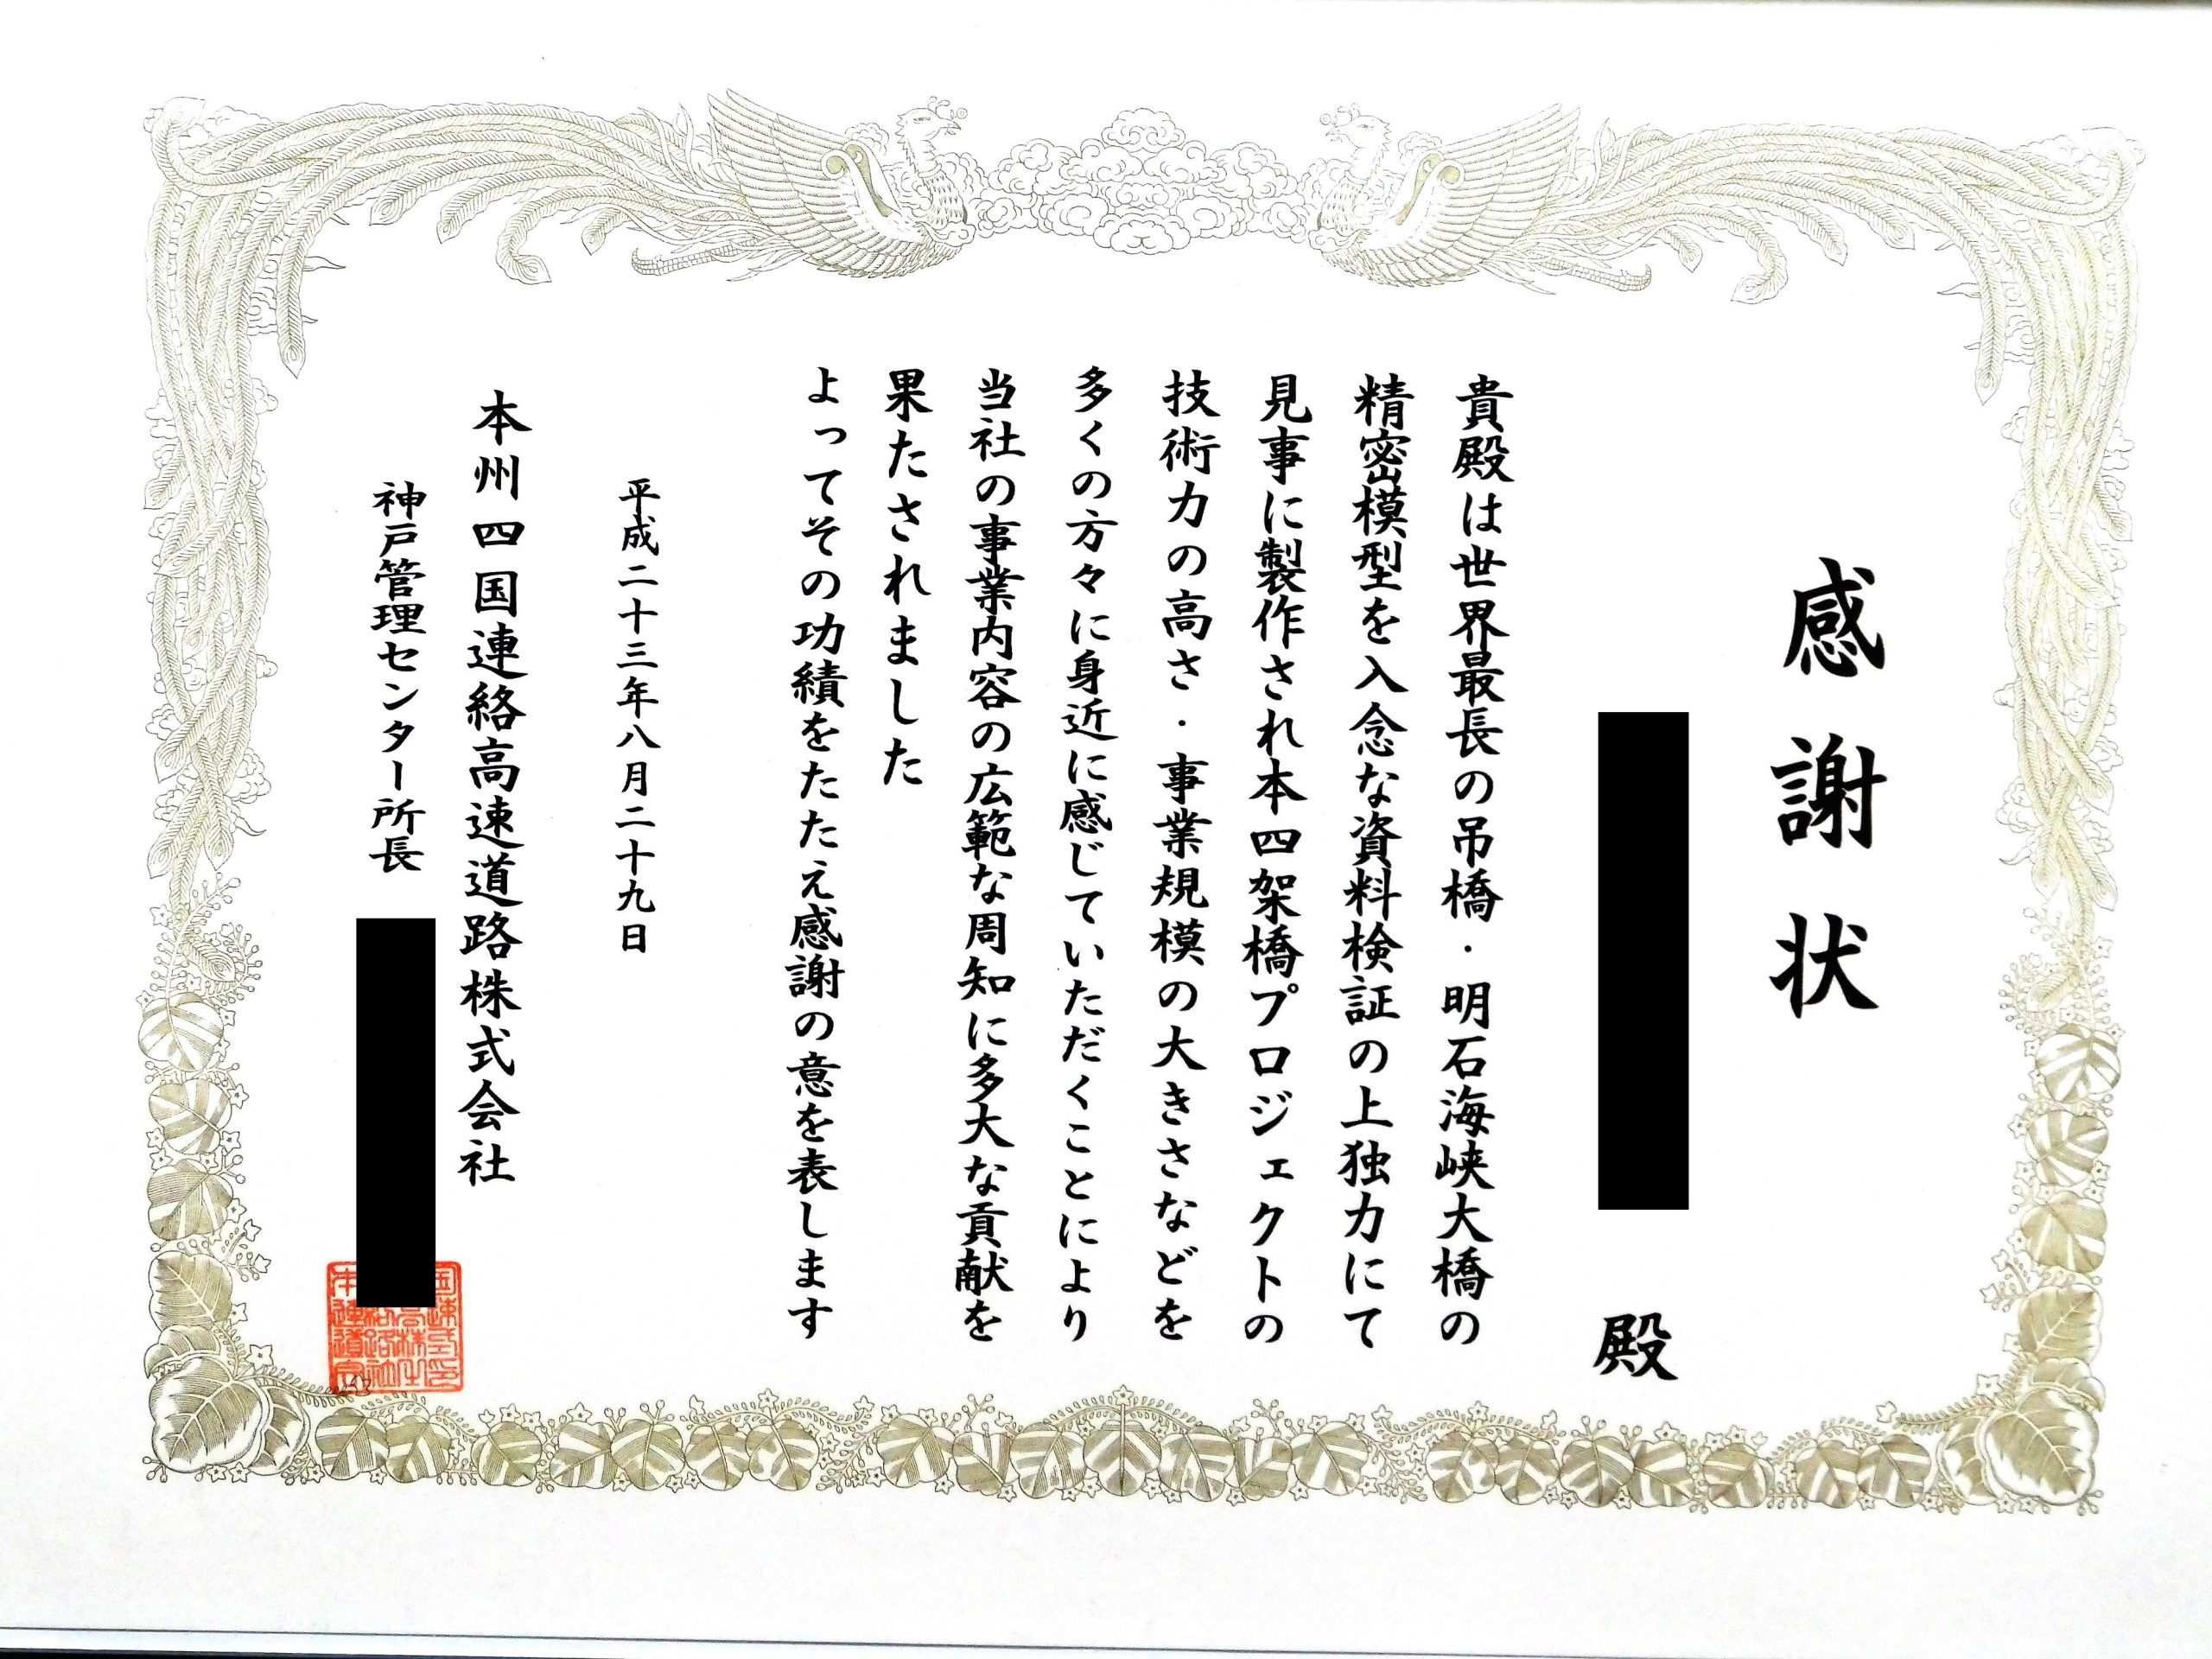 感謝状
殿
貴殿は世界最長の吊橋・明石海峡大橋の
精密模型を入念な資料検証の上独力にて
見事に製作され本四架橋プロジェクトの
技術力の高さ・事業規模の大きさなどを
多くの方々に身近に感じていただくことにより
当社の事業内容の広範な周知に多大な貢献を
果たされました
よってその功績をたたえ感謝の意を表します
平成二十三年八月二十九日
本州四国連絡高速道路株式会社
神戸管理センター所長